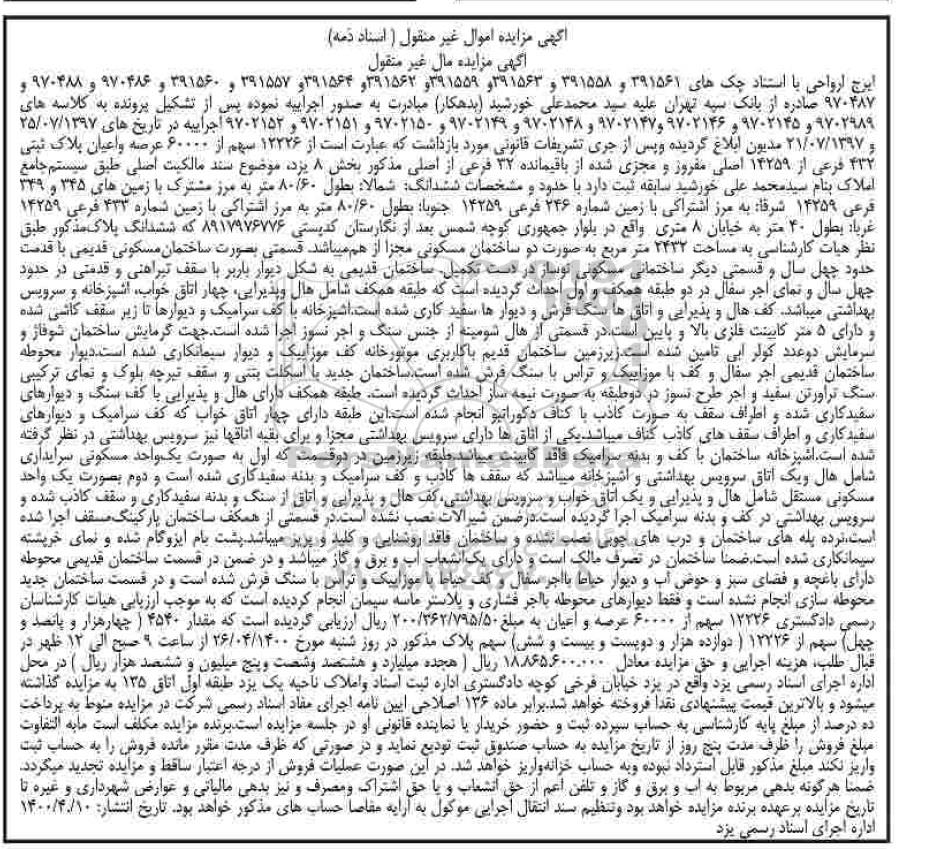 آگهی مزایده اموال غیر منقول ( اسناد ذمه)
آگهی مزایده مال غیر منقول
ایرج ارواحی با استناد چک های ۳۹۱۵۶۱ و ۳۹۱۵۵۸ و ۳۹۱۵۶۳و ۳۹۱۵۵۹و ۳۹۱۵۶۲و ۳۹۱۵۶۴و ۳۹۱۵۵۷ و ۳۹۱۵۶۰ و ۹۷۰۴۸۶ و ۹۷۰۴۸۸ و
۹۷۰۴۸۷ صادره از بانک سپه تهران علیه سید محمدعلی خورشید (بدهکار) مبادرت به صدور اجراییه نموده پس از تشکیل پرونده به کلاسه های
۹۷۰۲۹۸۹ و ۹۷۰۲۱۴۵ و ۹۷۰۲۱۴۶ و۹۷۰۲۱۴۷ و ۹۷۰۲۱۴۸ و ۹۷۰۲۱۴۹ و ۹۷۰۲۱۵۰و ۹۷۰۲۱۵۱ و ۹۷۰۲۱۵۲ اجراییه در تاریخ های ۲۵/۰۷/۱۳۹۷
و ۲۱/۰۷/۱۳۹۷ مدیون ابلاغ گردیده وپس از جری تشریفات قانونی مورد بازداشت که عبارت است از ۱۲۲۲۶ سهم از ۶۰۰۰۰ عرصه واعیان پلاک ثبتی
۴۳۲ فرعی از ۱۴۲۵۹ اصلی مفروز و مجزی شده از باقیمانده ۳۲ فرعی از اصلی مذکور بخش ۸ یزد، موضوع سند مالکیت اصلی طبق سیستم‌جامع
املاک بنام سیدمحمد علی خورشید سابقه ثبت دارد با حدود و مشخصات ششدانگ: شمالا: بطول ۸۰/۶۰ متر به مرز مشترک با زمین های ۳۴۵ و ۳۴۹
فرعی ۱۴۲۵۹ شرقا: به مرز اشتراکی با زمین شماره ۲۴۶ فرعی ۱۴۲۵۹ جنوبا: بطول ۸۰/۶۰ متر به مرز اشتراکی با زمین شماره ۴۳۳ فرعی ۱۴۲۵۹
غربا: بطول ۴۰ متر به خیابان ۸ متری واقع در بلوار جمهوری کوچه شمس بعد از نگارستان کدپستی ۸۹۱۷۹۷۶۷۷۶ که ششدانگ پلاک‌مذکور طبق
نظر هیات کارشناسی به مساحت ۲۴۳۲ متر مربع به صورت دو ساختمان مسکونی مجزا از هم‌میباشد. قسمتی بصورت ساختمان‌مسکونی قدیمی با قدمت
حدود چهل سال و قسمتی دیگر ساختمانی مسکونی نوساز در دست تکمیل. ساختمان قدیمی به شکل دیوار باربر با سقف تیرآهنی و قدمتی در حدود
چهل سال و نمای آجر سفال در دو طبقه همکف و اول احداث گردیده است که طبقه همکف شامل هال وپذیرایی، چهار اتاق خواب، آشپزخانه و سرویس
بهداشتی میباشد. کف هال و پذیرایی و اتاق ها سنگ فرش و دیوار ها سفید کاری شده است.آشپزخانه با کف سرامیک و دیوارها تا زیر سقف کاشی شده
و دارای ۵ متر کابینت فلزی بالا و پایین است.در قسمتی از هال شومینه از جنس سنگ و آجر نسوز اجرا شده است.جهت گرمایش ساختمان شوفاژ و
سرمایش دوعدد کولر آبی تامین شده است.زیرزمین ساختمان قدیم باکاربری موتورخانه کف موزاییک و دیوار سیمانکاری شده است.دیوار محوطه
ساختمان قدیمی آجر سفال و کف با موزاییک و تراس با سنگ فرش شده است.ساختمان جدید با اسکلت بتنی و سقف تیرچه بلوک و نمای ترکیبی
سنگ تراورتن سفید و آجر طرح نسوز در دوطبقه به صورت نیمه ساز احداث گردیده است. طبقه همکف دارای هال و پذیرایی با کف سنگ و دیوارهای
سفیدکاری شده و اطراف سقف به صورت کاذب با کناف دکوراتیو انجام شده است.این طبقه دارای چهار اتاق خواب که کف سرامیک و دیوارهای
سفیدکاری و اطراف سقف های کاذب کناف میباشد.یکی از اتاق ها دارای سرویس بهداشتی مجزا و برای بقیه اتاقها نیز سرویس بهداشتی در نظر گرفته
شده است.آشپزخانه ساختمان با کف و بدنه سرامیک فاقد کابینت میباشد.طبقه زیرزمین در دوقسمت که اول به صورت یک‌واحد مسکونی سرایداری
شامل هال ویک اتاق سرویس بهداشتی و آشپزخانه میباشد که سقف ها کاذب و کف سرامیک و بدنه سفیدکاری شده است و دوم بصورت یک واحد
مسکونی مستقل شامل هال و پذیرایی و یک اتاق خواب و سرویس بهداشتی،کف هال و پذیرایی و اتاق از سنگ و بدنه سفیدکاری و سقف کاذب شده و
سرویس بهداشتی در کف و بدنه سرامیک اجرا گردیده است.درضمن شیرآلات نصب نشده است.در قسمتی از همکف ساختمان پارکینگ‌مسقف اجرا شده
است.نرده پله های ساختمان و درب های چوبی نصب نشده و ساختمان فاقد روشنایی و کلید و پریز میباشد.پشت بام ایزوگام شده و نمای خرپشته
سیمانکاری شده است.ضمنا ساختمان در تصرف مالک است و دارای یک‌انشعاب آب و برق و گاز میباشد و در ضمن در قسمت ساختمان قدیمی محوطه
دارای باغچه و فضای سبز و حوض آب و دیوار حیاط باآجر سفال و کف حیاط با موزاییک و تراس با سنگ فرش شده است و در قسمت ساختمان جدید
محوطه سازی انجام نشده است و فقط دیوارهای محوطه باآجر فشاری و پلاستر ماسه سیمان انجام گردیده است که به موجب ارزیابی هیات کارشناسان
رسمی دادگستری ۱۲۲۲۶ سهم از ۶۰۰۰۰ عرصه و اعیان به مبلغ ۲۰۰/۳۶۲/۷۹۵/۵۰ ریال ارزیابی گردیده است که مقدار ۴۵۴۰ ( چهارهزار و پانصد و
چهل) سهم از ۱۲۲۲۶ ( دوازده هزار و دویست و بیست و شش) سهم پلاک مذکور در روز شنبه مورخ ۲۶/۰۴/۱۴۰۰ از ساعت ۹ صبح الی ۱۲ ظهر در
قبال طلب، هزینه اجرایی و حق مزایده معادل ۱۸.۸۶۵.۶۰۰.۰۰۰ ریال ( هجده میلیارد و هشتصد وشصت و پنج میلیون و ششصد هزار ریال ) در محل
اداره اجرای اسناد رسمی یزد واقع در یزد خیابان فرخی کوچه دادگستری اداره ثبت اسناد واملاک ناحیه یک یزد طبقه اول اتاق ۱۳۵ به مزایده گذاشته
میشود و بالاترین قیمت پیشنهادی نقدا فروخته خواهد شد.برابر ماده ۱۳۶ اصلاحی آیین نامه اجرای مفاد اسناد رسمی شرکت در مزایده منوط به پرداخت
ده درصد از مبلغ پایه کارشناسی به حساب سپرده ثبت و حضور خریدار یا نماینده قانونی او در جلسه مزایده است.برنده مزایده مکلف است مابه التفاوت
مبلغ فروش را ظرف مدت پنج روز از تاریخ مزایده به حساب صندوق ثبت تودیع نماید و در صورتی که ظرف مدت مقرر مانده فروش را به حساب ثبت
واریز نکند مبلغ مذکور قابل استرداد نبوده وبه حساب خزانه‌واریز خواهد شد. در این صورت عملیات فروش از درجه اعتبار ساقط و مزایده تجدید میگردد.
ضمنا هرگونه بدهی مربوط به آب و برق و گاز و تلفن اعم از حق انشعاب و یا حق اشتراک ومصرف و نیز بدهی مالیاتی و عوارض شهرداری و غیره تا
تاریخ مزایده برعهده برنده مزایده خواهد بود وتنظیم سند انتقال اجرایی موکول به ارایه مفاصا حساب های مذکور خواهد بود. تاریخ انتشار: ۱۴۰۰/۴/۱۰
اداره اجرای اسناد رسمی یزد